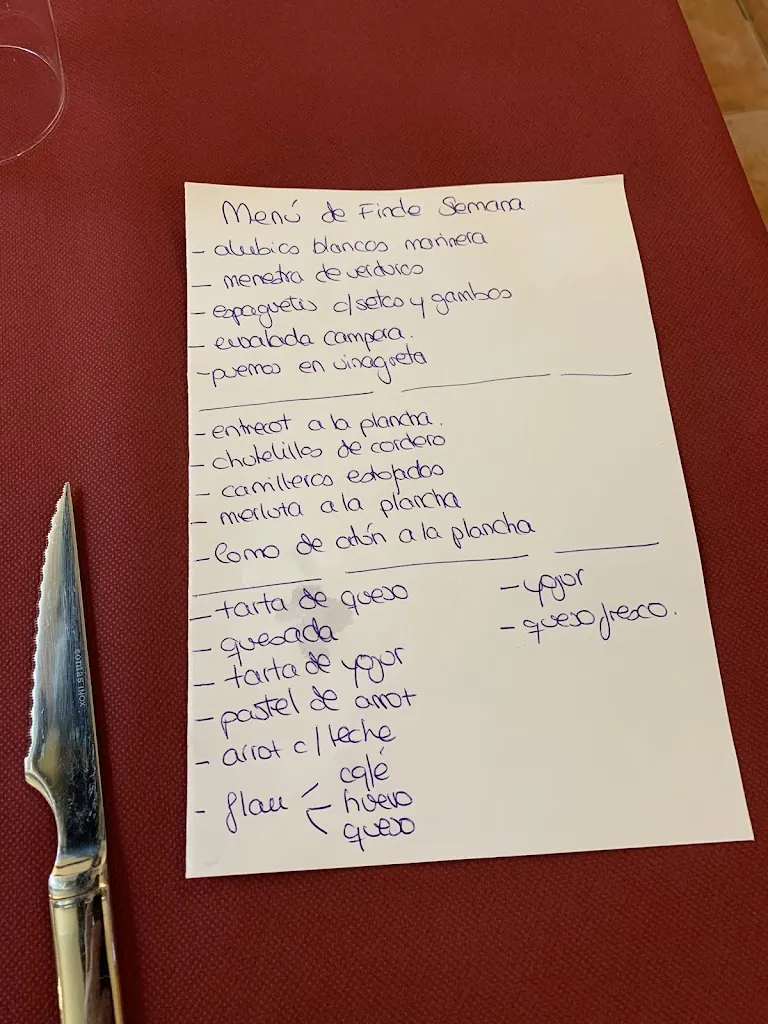 Menú de Finde Semana
- alubias blancas marinera
- menestra de verduras
- espaguetis c/setas y gambas
- ensalada campera.
- puerros en vinagreta
- entrecot a la plancha.
- chuletillas de cordero
- carrilleras estofadas
- merluza a la plancha
- lomo de atún a la plancha
- tarta de queso
- quesada
- tarta de yogur
- pastel de arroz
- arroz c/leche
- flan
café
huevo
queso
- yogur
- queso fresco.
COMAS INOX